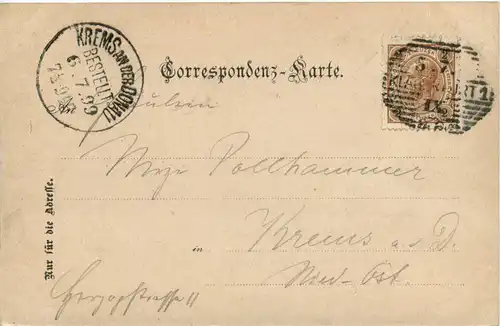 KREMS AN DER DONAU
BESTELLT
6.7.99
Correspondenz-Karte.
KLAGENFURT 1
Pollhammer
in Krems a. d. D.
Nied-Öst.
Herzogstrasse 11
Nur für die Adresse.